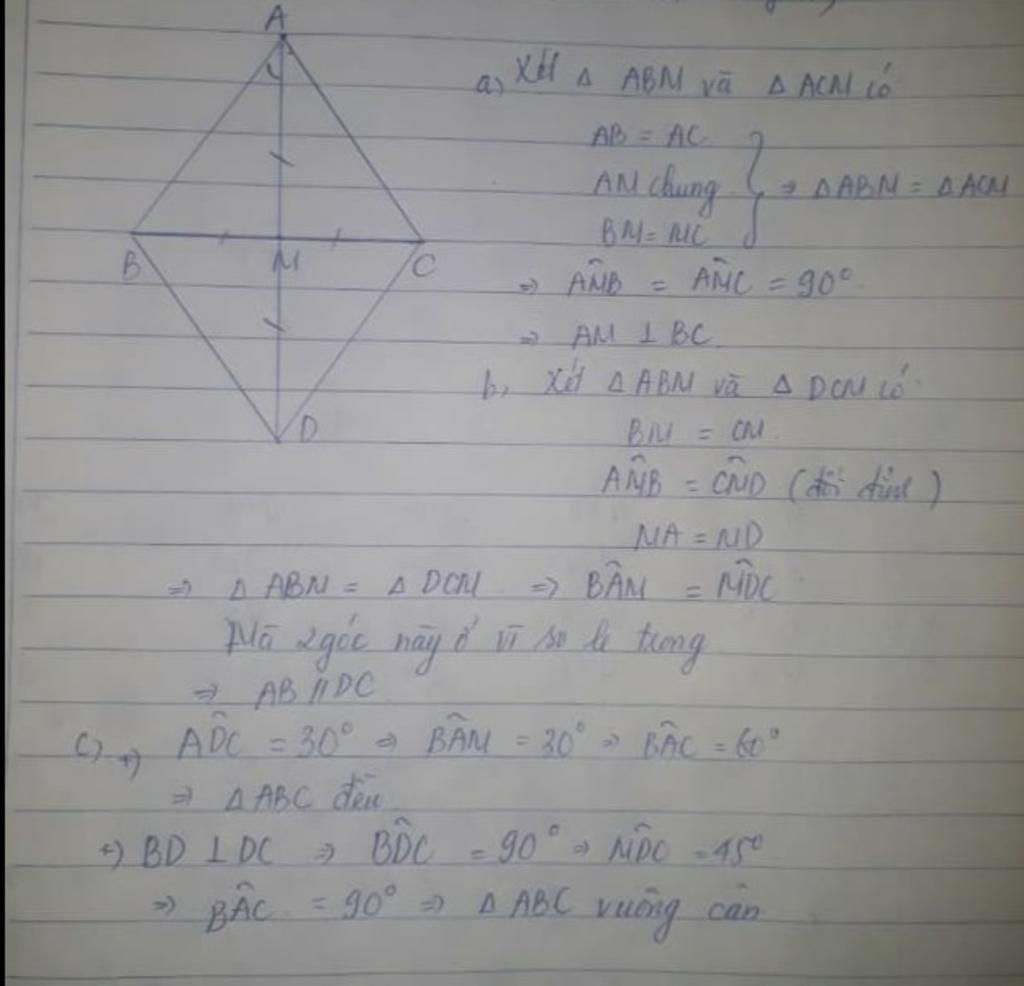 A
B
M
C
D
a) Xét Δ ABM và Δ ACM có
AB = AC
AM chung } ⇒ ΔABM = ΔACM
BM = MC
⇒ AM̂B = AM̂C = 90°
⇒ AM ⊥ BC
b, Xét ΔABM và Δ DCM có
BM = CM
AM̂B = CM̂D (đối đỉnh)
MA = MD
⇒ Δ ABM = Δ DCM ⇒ BÂM = MD̂C
Mà 2 góc này ở vì so le trong
⇒ AB // DC
c) +) AD̂C = 30° ⇒ BÂM = 30° ⇒ BÂC = 60°
⇒ ΔABC đều
+) BD ⊥ DC ⇒ BD̂C = 90° ⇒ MD̂C = 45°
⇒ BÂC = 90° ⇒ ΔABC vuông cân